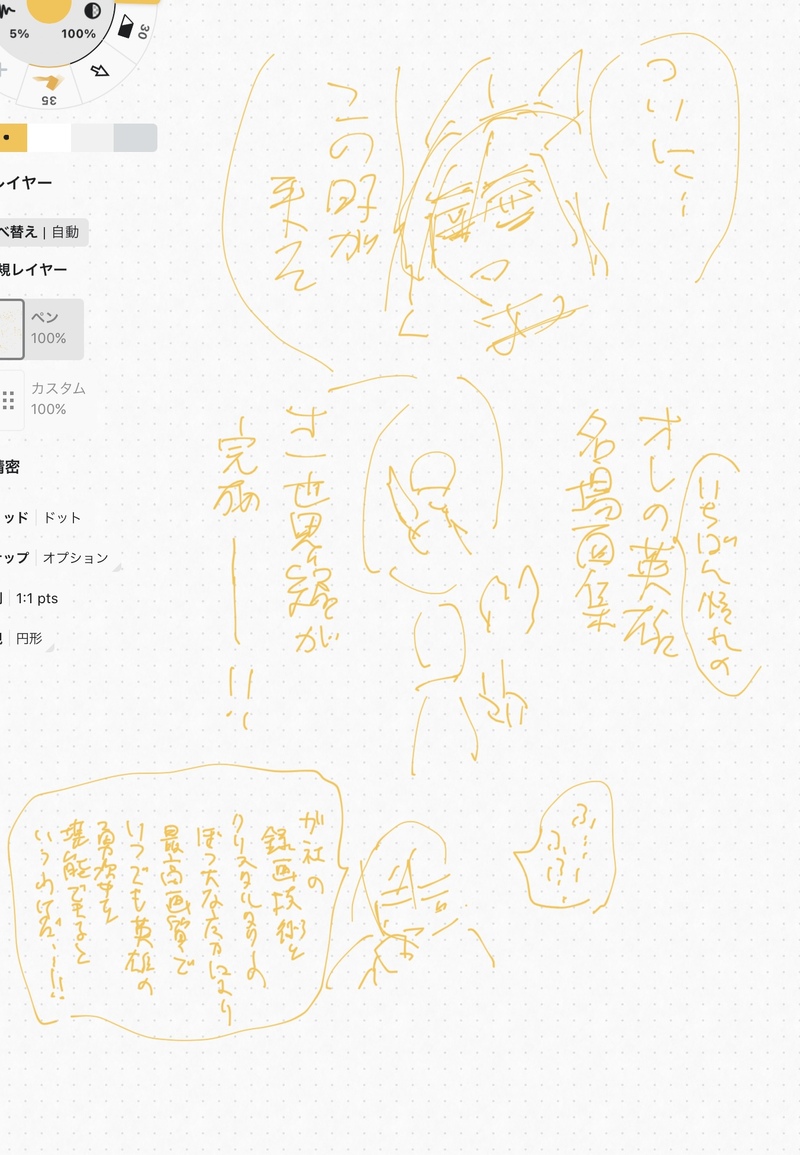 5%
100%
30
35
レイヤー
べ替え | 自動
規レイヤー
ペン
100%
カスタム
100%
精密
ッド ドット
ナップ オプション
1:1 pts
円形
ついに…
この時が
来た
いちばん憧れの
オレの英雄
名場面集
オレ世界編が
完成──!!
ふ…
ふふ…
が社の
録画技術と
クリスタルタワーの
ぼう大な店力により
最高画質で
いつでも英雄の
勇姿を
堪能できると
いうわけだ…!!